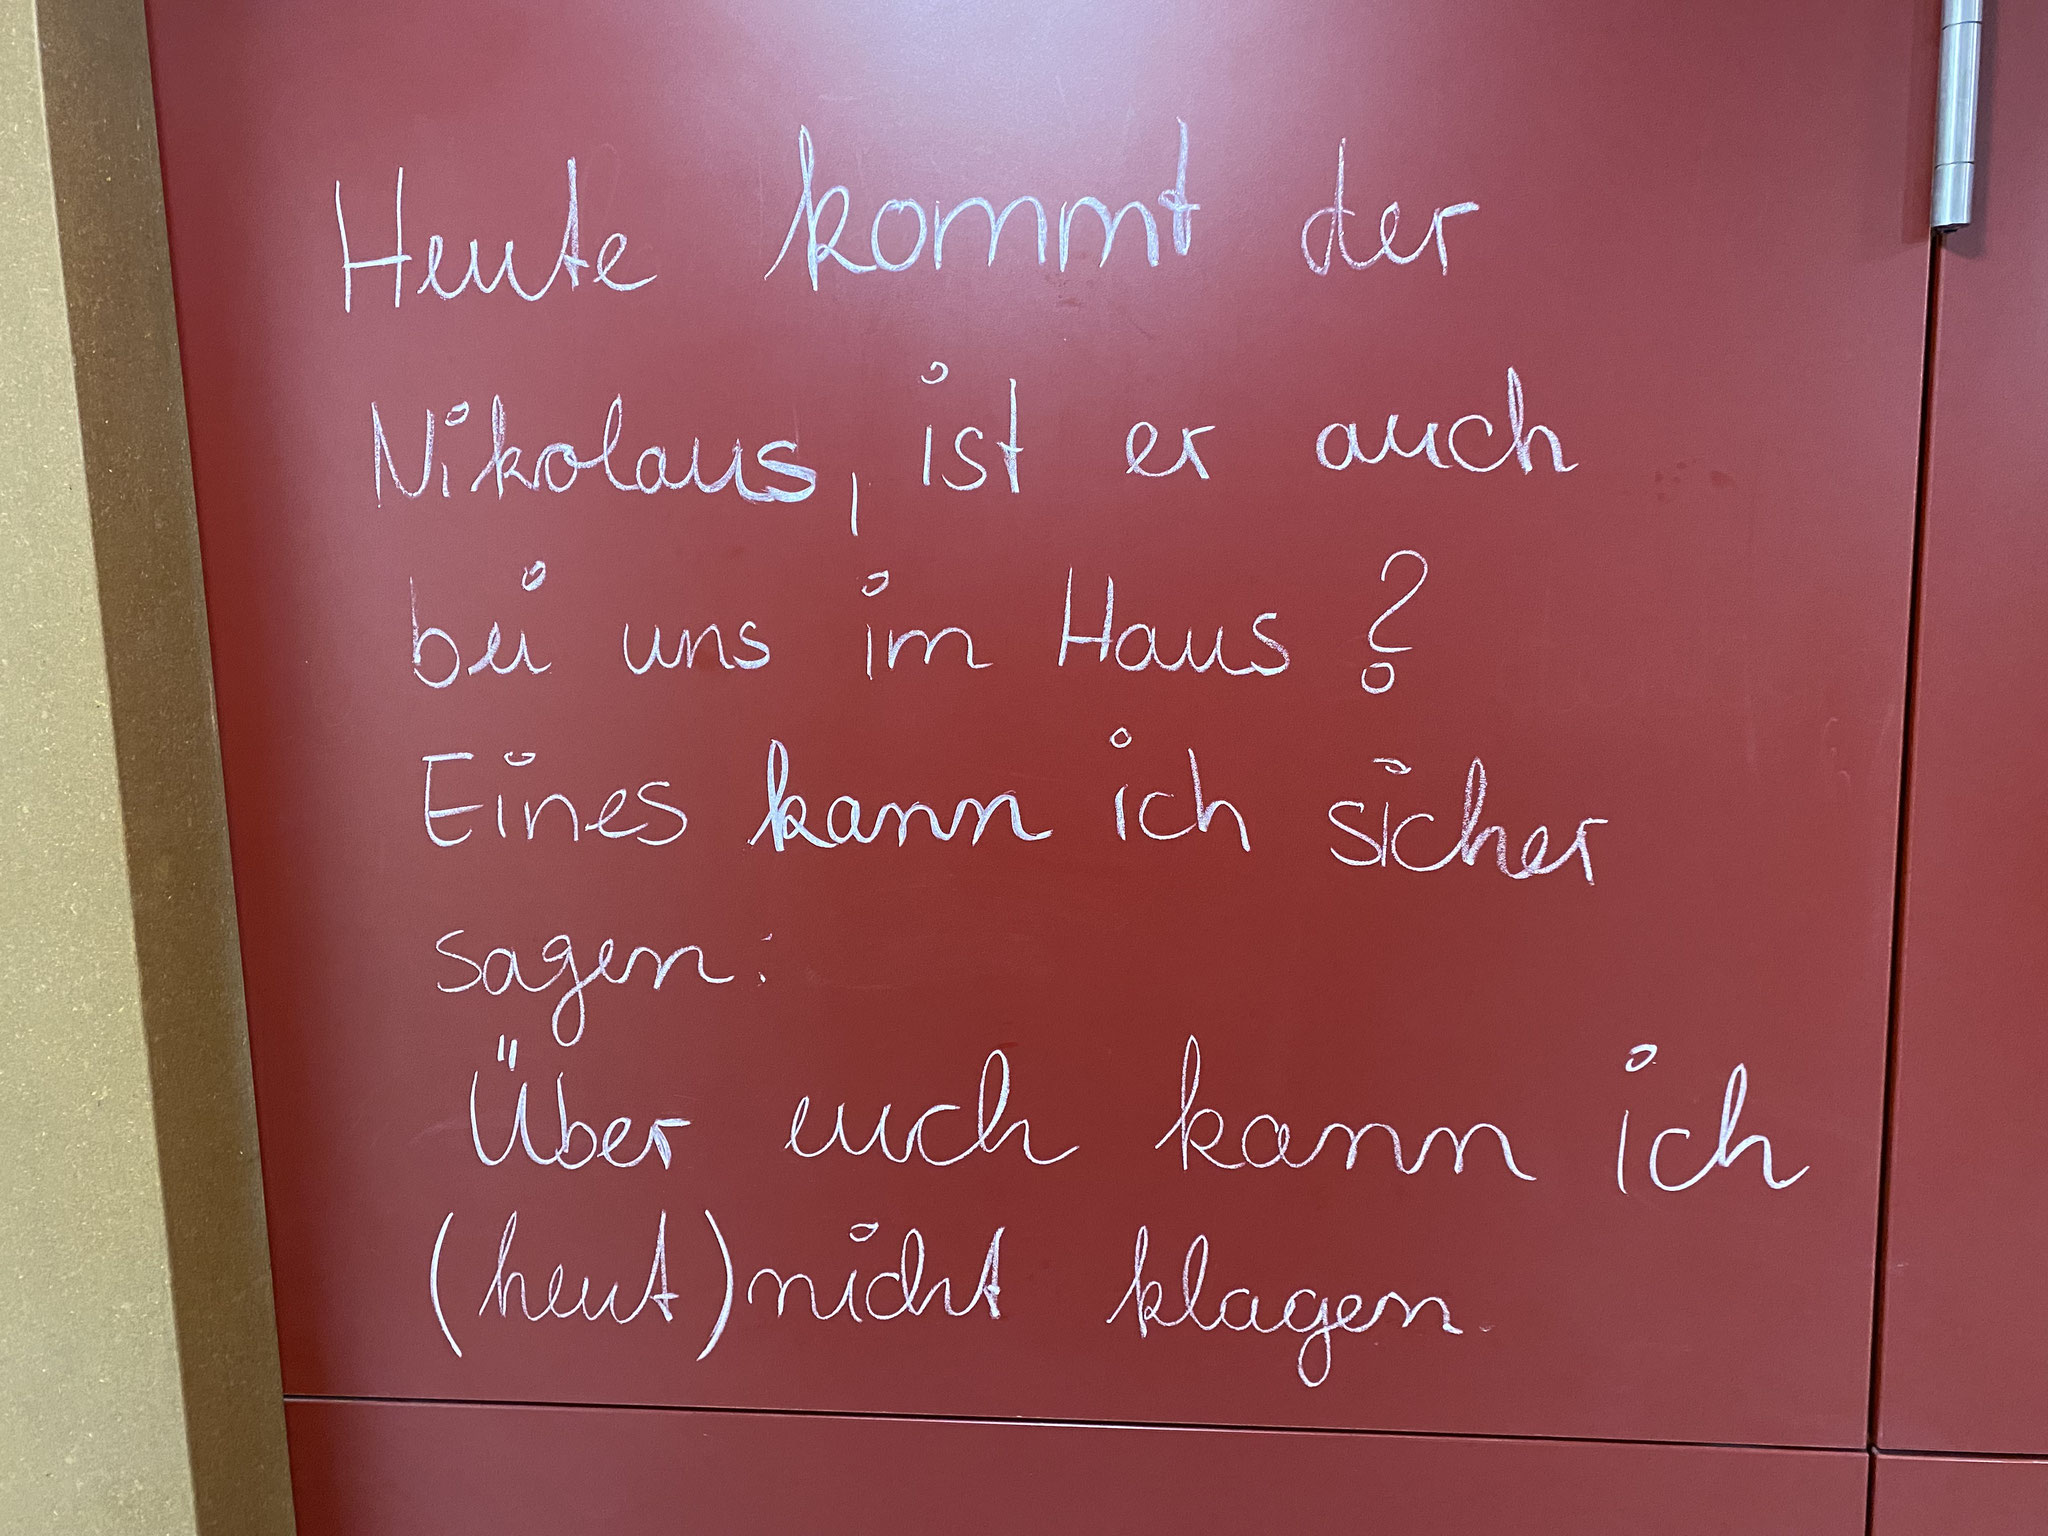 Heute kommt der
Nikolaus, ist er auch
bei uns im Haus?
Eines kann ich sicher
sagen:
Über euch kann ich
(heut) nicht klagen.